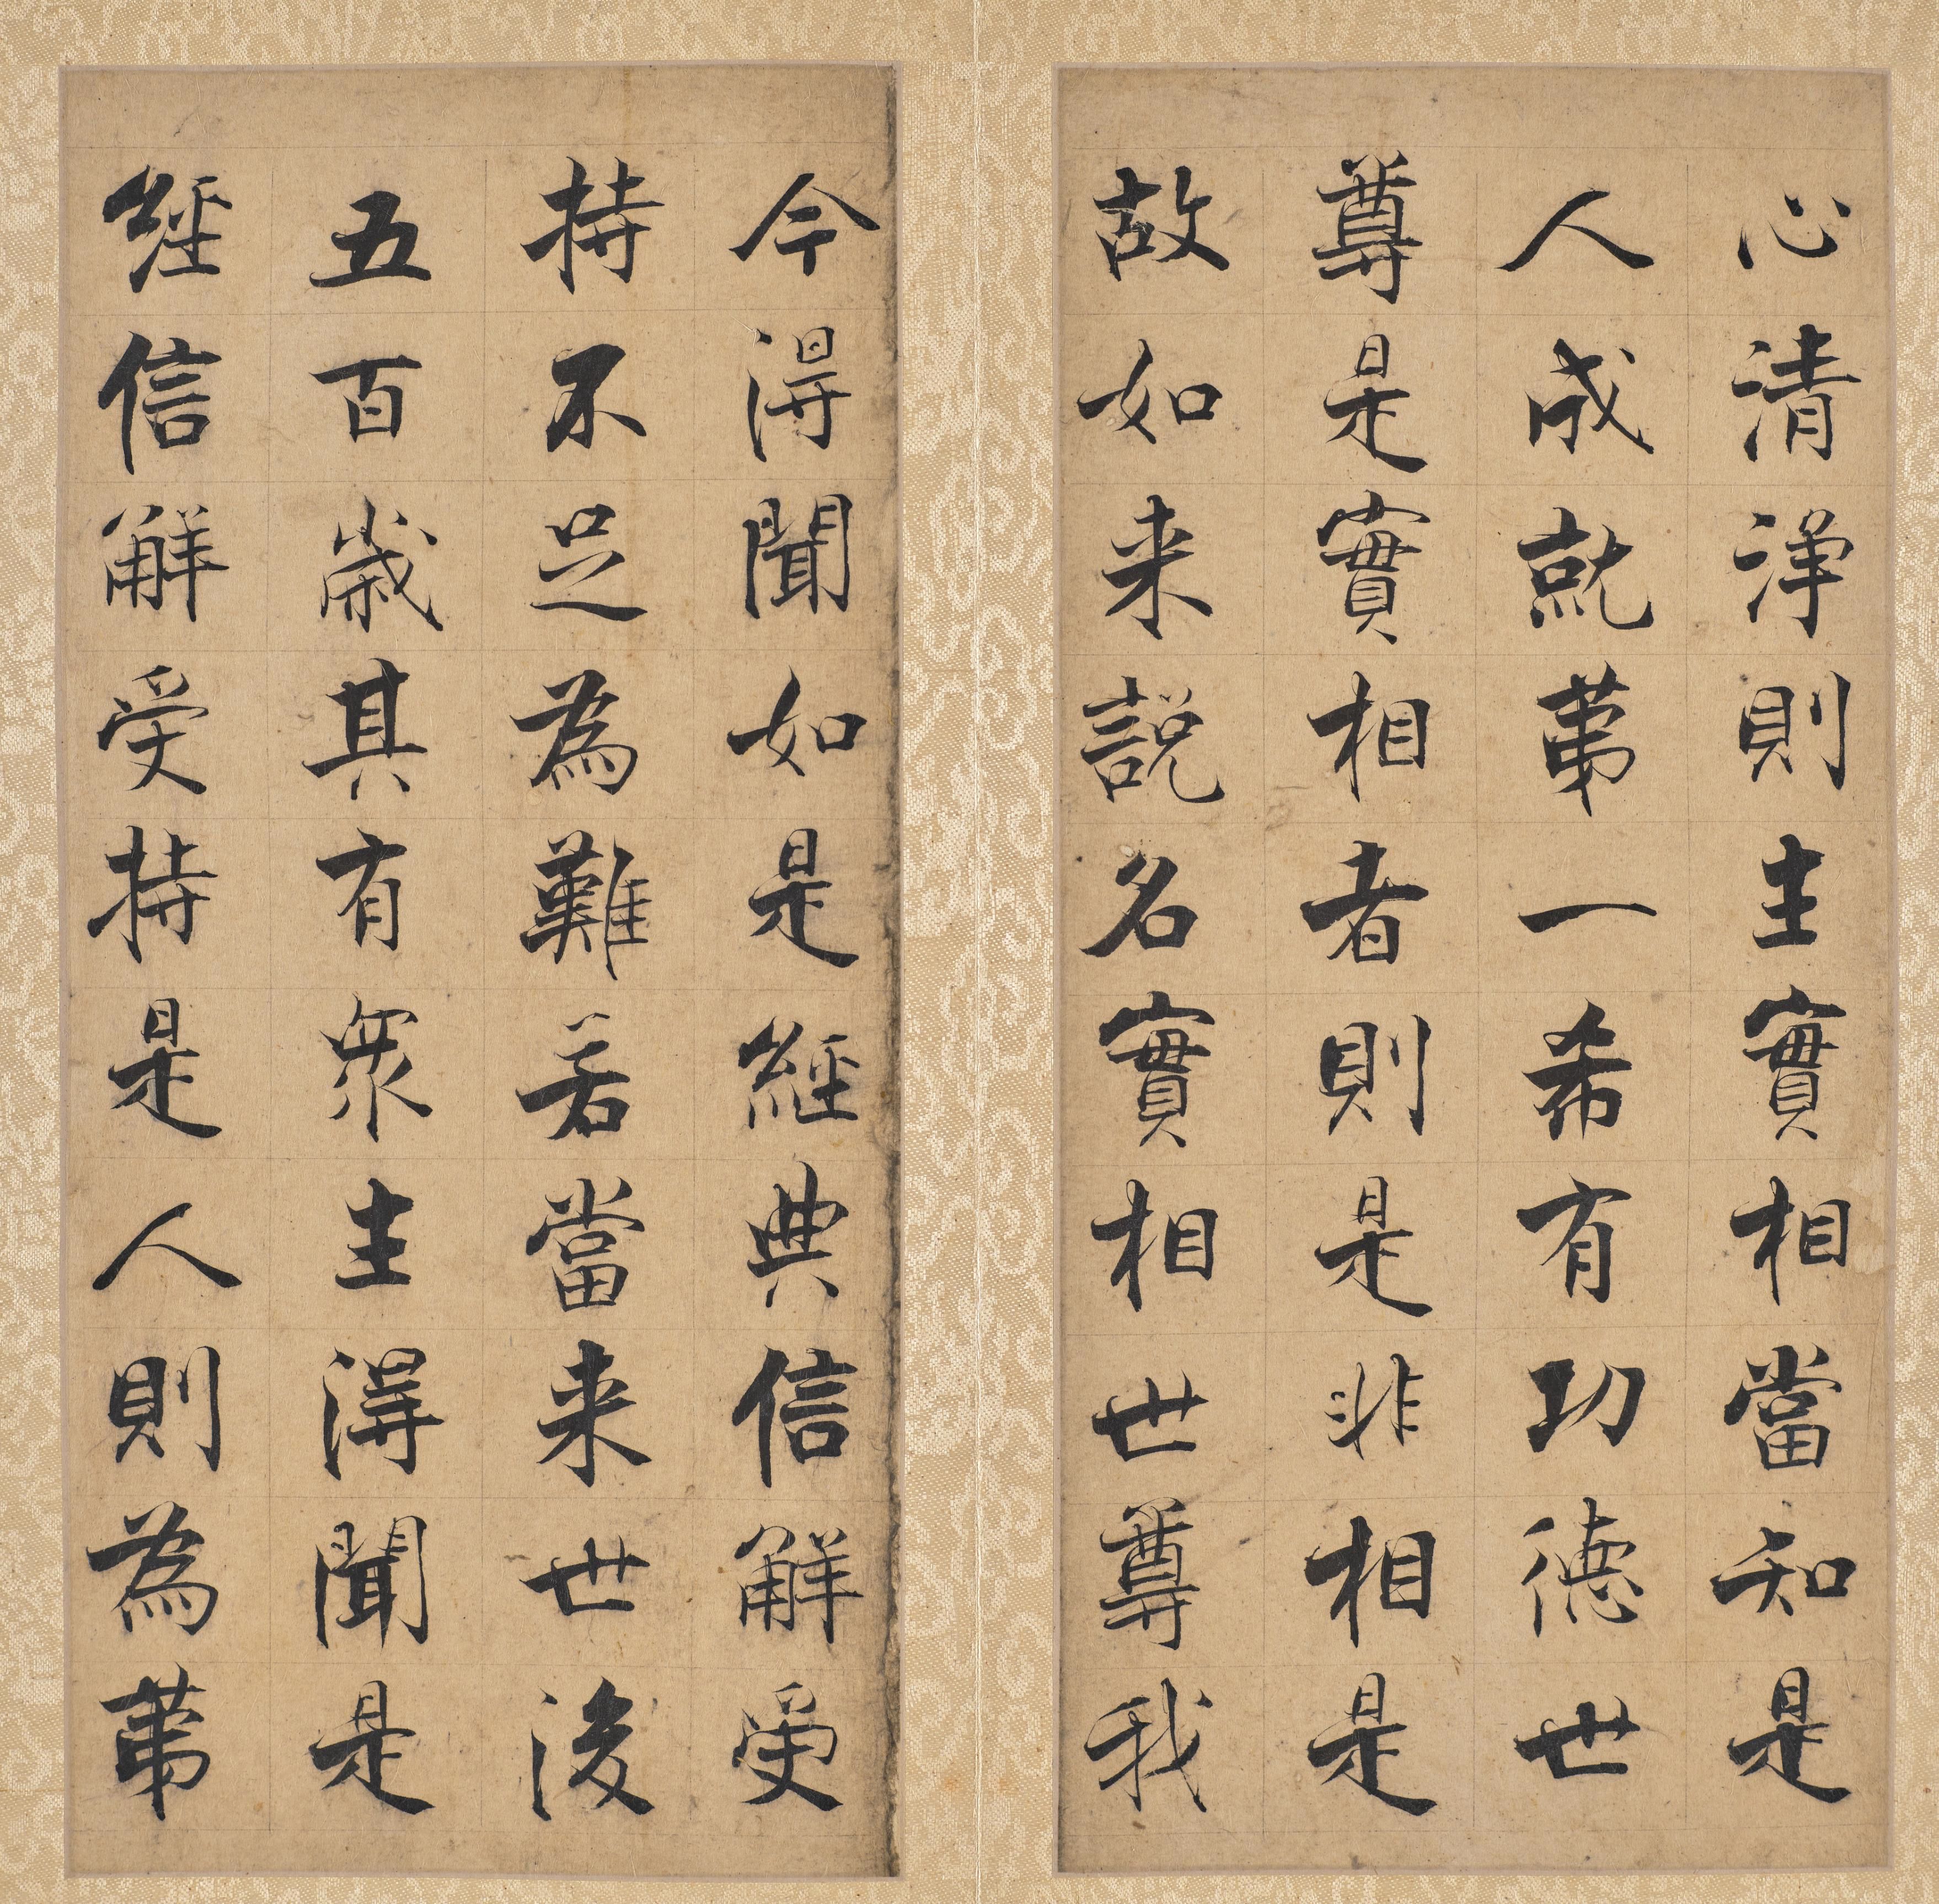 心清淨則生實相當知是
人成就苐一希有功德世
尊是實相者則是非相是
故如来說名實相世尊我
今得聞如是經典信解受
持不足為難若當来世後
五百歲其有衆生得聞是
經信解受持是人則為苐